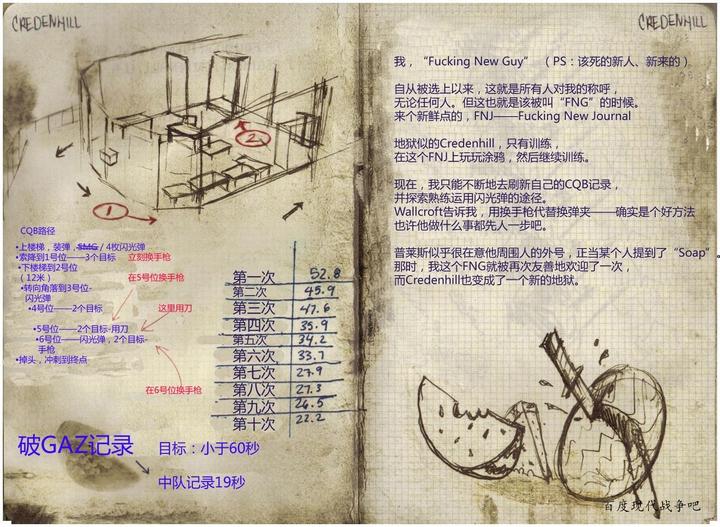 CREDENHILL
①
②
CQB路径
•上楼梯，装弹，SMG / 4枚闪光弹
•索降到1号位——3个目标
立刻换手枪
•下楼梯到2号位
（12米）
在5号位换手枪
•转向角落到3号位-
闪光弹
•4号位——2个目标
这里用刀
•5号位——2个目标-用刀
•6号位——闪光弹，2个目标-
手枪
•掉头，冲刺到终点
在6号位换手枪
第一次 52.8
第二次 45.9
第三次 47.6
第四次 35.9
第五次 34.2
第六次 33.7
第七次 27.9
第八次 27.3
第九次 26.5
第十次 22.2
破GAZ记录
目标：小于60秒
中队记录19秒
CREDENHILL
我，“Fucking New Guy” （PS：该死的新人、新来的）
自从被选上以来，这就是所有人对我的称呼，
无论任何人。但这也就是该被叫“FNG”的时候。
来个新鲜点的，FNJ——Fucking New Journal
地狱似的Credenhill，只有训练，
在这个FNJ上玩玩涂鸦，然后继续训练。
现在，我只能不断地去刷新自己的CQB记录，
并探索熟练运用闪光弹的途径。
Wallcroft告诉我，用换手枪代替换弹夹——确实是个好方法
也许他做什么事都先人一步吧。
普莱斯似乎很在意他周围人的外号，正当某个人提到了“Soap”。
那时，我这个FNG就被再次友善地欢迎了一次，
而Credenhill也变成了一个新的地狱。
百度现代战争吧